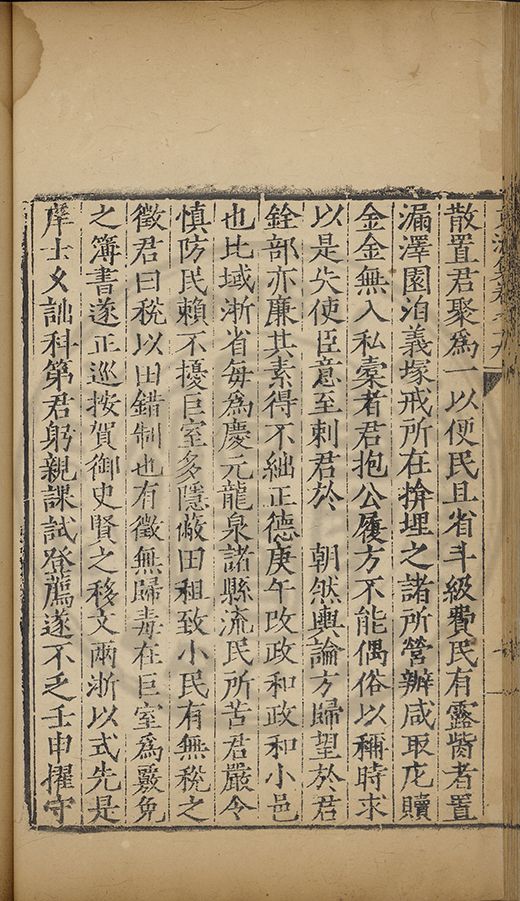 散置君聚爲一以便民且省斗級費民有露胔者置
漏澤園泊義塚戒所在揜埋之諸所營辦咸取庀贖
金金無入私槖者君抱公履方不能偶俗以稱時求
以是失使臣意至刺君於 朝然輿論方歸望於君
銓部亦廉其素得不絀正德庚午改政和政和小邑
也比域浙省每爲慶元龍泉諸縣流民所苦君嚴令
慎防民賴不擾巨室多隱蔽田租致小民有無稅之
徵君曰稅以田錯制也有徵無歸毒在巨室爲覈免
之簿書遂正巡按賀御史賢之移文兩浙以式先是
庠士乂詘科第君躬親課試登薦遂不乏壬申擢守